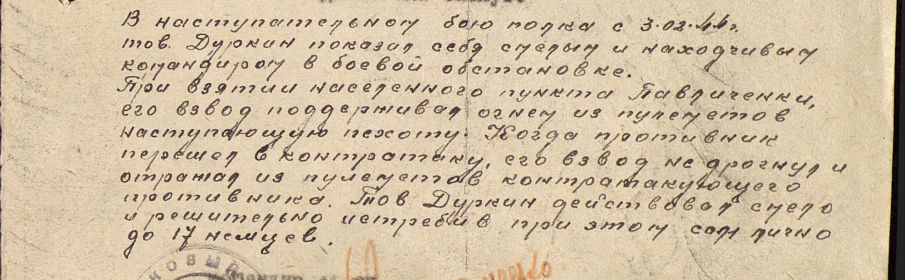 В наступательном бою полка с 3.02.44г.
тов. Дуркин показал себя смелым и находчивым
командиром в боевой обстановке.
При взятии населенного пункта Павличенки,
его взвод поддерживал огнем из пулеметов
наступающую пехоту. Когда противник
перешел в контратаку, его взвод не дрогнул и
отражал из пулеметов контратакующего
противника. Тов Дуркин действовал смело
и решительно истребив при этом сам лично
до 17 немцев.